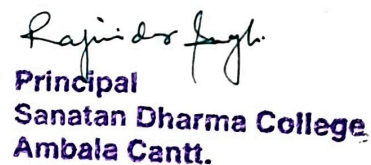 Rajinder Singh.
Principal
Sanatan Dharma College
Ambala Cantt.